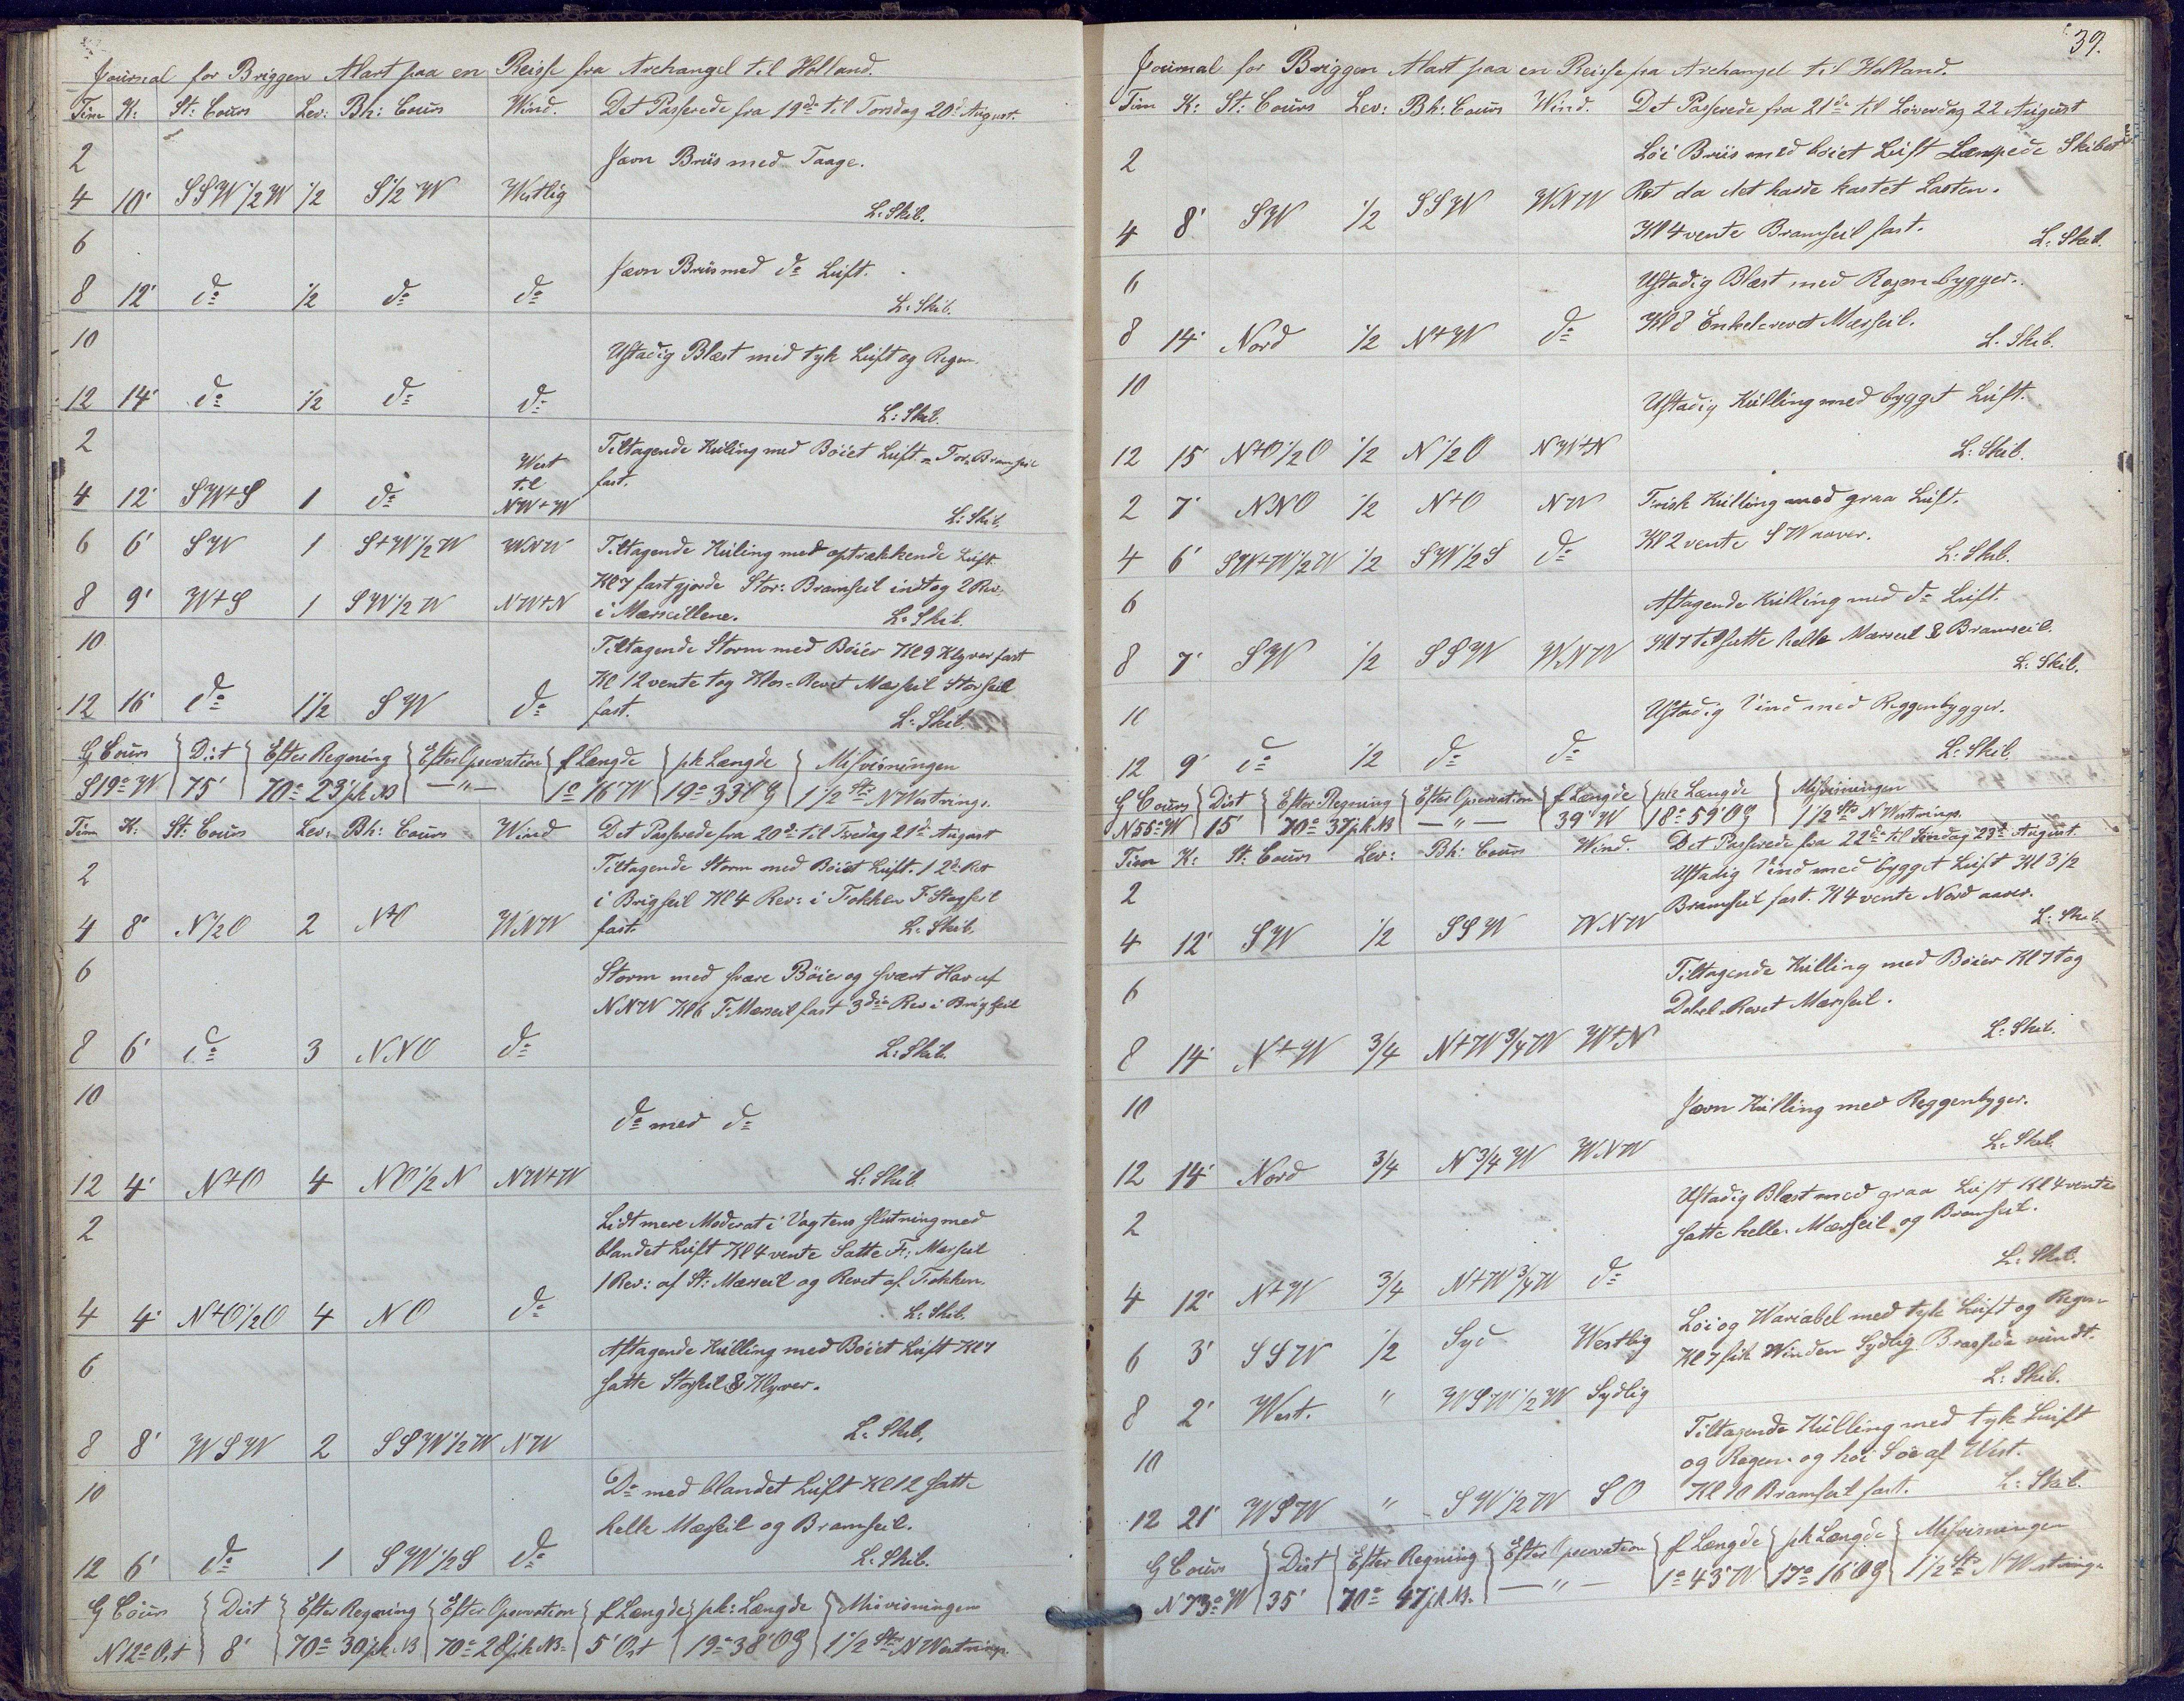 Journal for Briggen Alart paa en Reisse fra Archangel til Holland.
Tim K: St: Cours Lev: Bh: Cours Wind. Det Passerede fra 19de til Torsdag 20d August.
2 Jævn Briis med Taage.
4 10' SSW 1/2 W 1/2 S 1/2 W Westlig
L: Skib.
6
Jævn Briis med do Luft.
8 12' do 1/2 do do
L: Skib.
10
Ustadig Blæst med tyk Luft og Regen.
12 14' do 1/2 do do
L: Skib.
2 Tiltagende Kuling med Böiet Luft. For-Bramseil
West til NW+W
4 12' SW+S 1 do fast.
L: Skib.
6 6' SW 1 S+W 1/2 W WNW Tiltagende Kuling med optrækkende Luft.
Kl 7 fastgjorde Stor: Bramseil indtog 2 Rev
8 9' W+S 1 SW 1/2 W NW+N i Mærseillene. L: Skib.
10 Tiltagende Storm med Böier Kl 9 Klyver fast
Kl 12 vente tog Klos-Revet Mærseil Storseil
12 16' do 1 1/2 SW do fast. L: Skib.
G Cours Dist Efter Regning Efter Opservation f Længde pk Længde Misvisningen
S 19o W 75' 70o 23' pk B — " — 1o 16' W 19o 33' OG 1 1/2 Str NWestring.
Tim K: St: Cours Lev: Bh: Cours Wind Det Passerede fra 20d til Fredag 21d August
2 Tiltagende Storm med Böiet Luft. 1 2d Rev
i Brigseil Kl 4 Rev: i Fokken F Stagseil
4 8' N 1/2 O 2 N+O WNW fast. L: Skib.
6 Storm med svære Böie og svært Hav af
NNW Kl 6 F: Mærseil fast 3die Rev i Brigseil
8 6' do 3 NNO do L: Skib.
10
do med do
12 4' N+O 4 NO 1/2 N NW+W L: Skib.
2 Lidt mere Moderat i Vagtens slutning med
blandet Luft Kl 4 vente Satte F: Mærseil
1 Rev: af St: Mærseil og Revet af Fokken.
4 4' N+O 1/2 O 4 NO do L: Skib.
6 Aftagende Kulling med Böiet Luft Kl 7
satte Storseil & Klyver.
8 8' WSW 2 SSW 1/2 W NW L: Skib.
10 Do med blandet Luft Kl 12 satte
helle Mærseil og Bramseil.
12 6' do 1 SW 1/2 S do L: Skib.
G Cours Dist Efter Regning Efter Opservation f Længde pk: Længde Misvisningen
N 12o Ost 8' 70o 30' pk B 70o 28' pk B 5' Ost 19o 38' OG 1 1/2 Str NWestring.
39.
Journal for Briggen Alart paa en Reisse fra Archangel til Holland.
Tim K: St: Cours Lev: Bh: Cours Wind. Det Passerede fra 21de til Löverdag 22 August
2 Löi Briis med böiet Luft Læmpede Skibet
Ret da det havde kastet Lasten.
4 8' SW 1/2 SSW WNW Kl 4 vente Bramseil fast. L: Skib.
6 Ustadig Blæst med Regnbygger.
8 14' Nord 1/2 N+W do Kl 8 Enkelrevet Mærseil. L: Skib.
10
Ustadig Kulling med bygget Luft.
12 15' N+O 1/2 O 1/2 N 1/2 O NW+N L: Skib.
2 7' NNO 1/2 N+O NW Frisk Kulling med graa Luft.
4 6' SW+W 1/2 W 1/2 SW 1/2 S do Kl 2 vente SW aaver. L: Skib.
6 Aftagende Kulling med do Luft.
8 7' SW 1/2 SSW WNW Kl 7 tilsatte helle Mærseil & Bramseil.
L: Skib.
10 Ustadig Vind med Reggenbygger.
12 9' do 1/2 do do L: Skib.
G Cours Dist Efter Regning Efter Opservation f Længde pk Længde Misvisningen
N 55o W 15' 70o 37' pk B — " — 39' W 18o 59' OG 1 1/2 Str NWestring.
Tim K: St: Cours Lev: Bh: Cours Wind. Det Passerede fra 22de til Söndag 23d August.
2 Ustadig Vind med bygget Luft Kl 3 1/2
Bramseil fast. Kl 4 vente Nord aaver.
4 12' SW 1/2 SSW WNW L: Skib.
6 Tiltagende Kulling med Böier Kl 7 tog
Dobel-Revet Mærseil.
8 14' N+W 3/4 N+W 3/4 W W+N L: Skib.
10 Jævn Kulling med Reggenbyger.
12 14' Nord 3/4 N 3/4 W WNW L: Skib.
2 Ustadig Blæst med graa Luft Kl 4 vente
satte helle Mærseil og Bramseil.
4 12' N+W 3/4 N+W 3/4 W do L: Skib.
6 3' SSW 1/2 Syd Westlig Löi og Wariabel med tyk Luft og Regen
Kl 7 fik Winden Sydlig Brasede rundt.
8 2' West. " WSW 1/2 W Sydlig L: Skib.
10 Tiltagende Kulling med tyk Luft
og Regen og höi Söe af West.
12 21' WSW " SW 1/2 W SO Kl 10 Bramseil fast. L: Skib.
G Cours Dist Efter Regning Efter Opservation f Længde pk Længde Misvisningen
N 73o W 35' 70o 47' pk B. — " — 1o 43' W 17o 16' OG 1 1/2 Str NWestring.